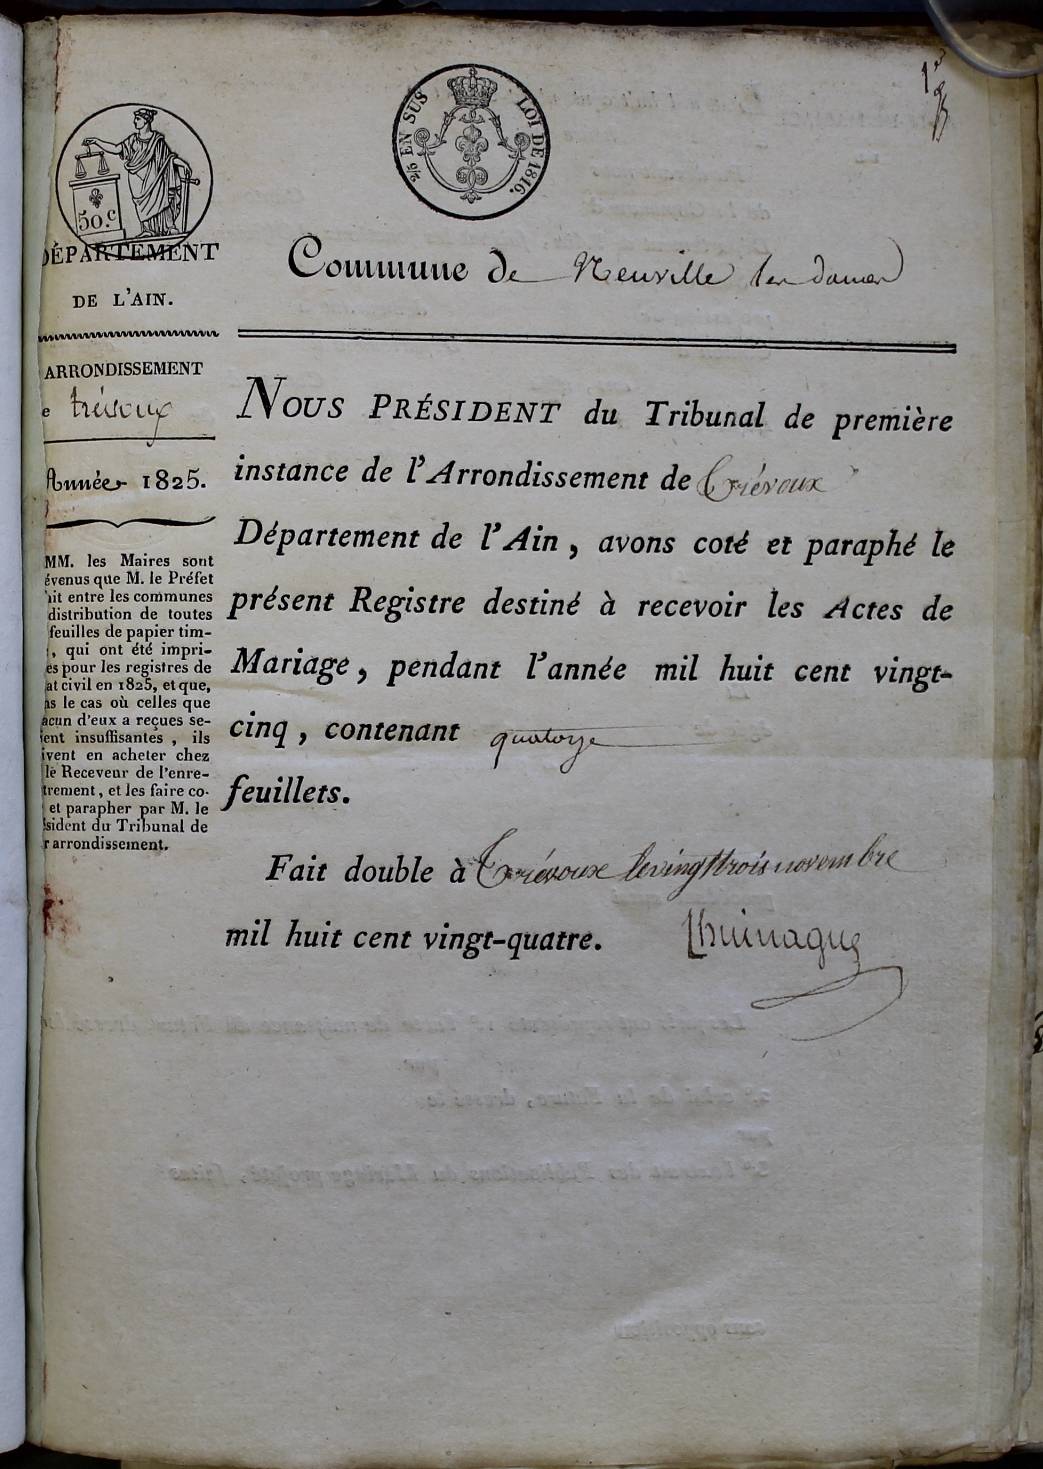 1er
50.c
2/5 EN SUS LOI DE 1816.
DÉPARTEMENT
DE L'AIN.
Commune de Neuville les dames
ARRONDISSEMENT
e trévoux
Année 1825.
MM. les Maires sont
évenus que M. le Préfet
it entre les communes
distribution de toutes
feuilles de papier tim-
, qui ont été impri-
es pour les registres de
at civil en 1825, et que,
ns le cas où celles que
acun d'eux a reçues se-
ent insuffisantes, ils
ivent en acheter chez
le Receveur de l'enre-
trement, et les faire co-
et parapher par M. le
ésident du Tribunal de
r arrondissement.
NOUS PRÉSIDENT du Tribunal de première
instance de l'Arrondissement de Trévoux
Département de l'Ain, avons coté et paraphé le
présent Registre destiné à recevoir les Actes de
Mariage, pendant l'année mil huit cent vingt-
cinq, contenant quatorze
feuillets.
Fait double à Trévoux le vingt trois novembre
mil huit cent vingt-quatre.